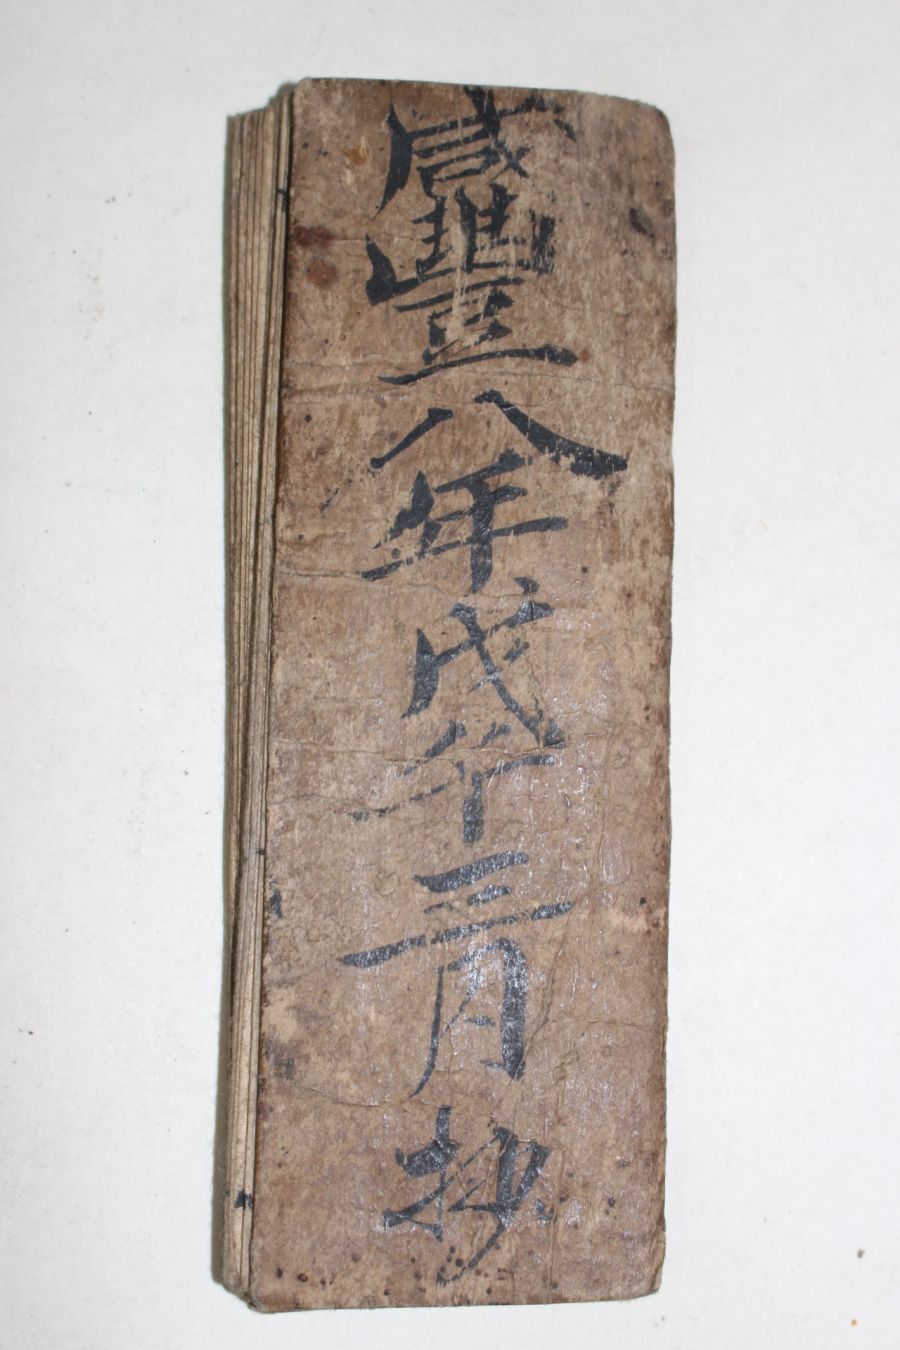 咸豐八年戊午三月抄